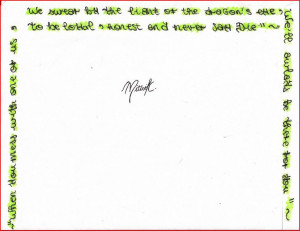 We swear by the light of the dragon's eye,
To be loyal & honest and never say die" ~
We'll always be there for you" ~
"When you mess with one of us,